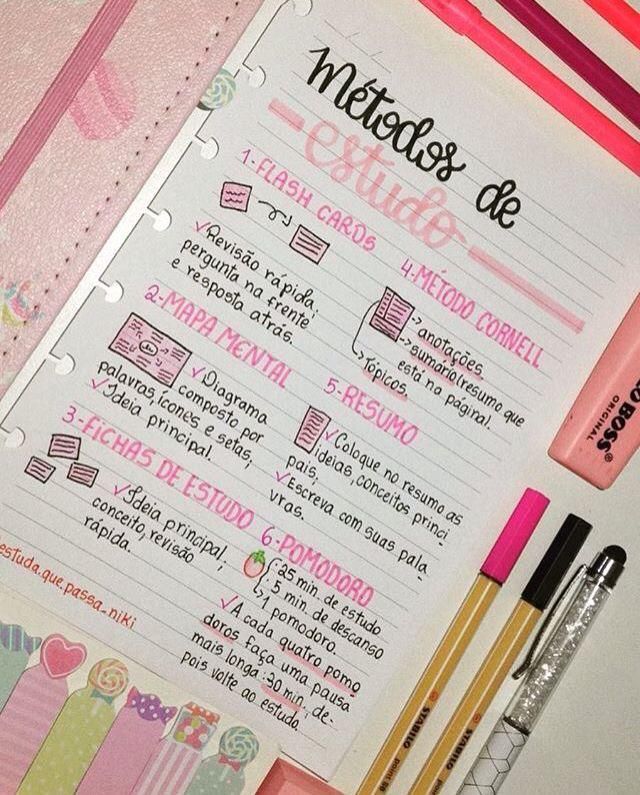 Métodos de
estudo
1-FLASH CARDS
✓Revisão rápida;
pergunta na frente
e resposta atrás.
2-MAPA MENTAL
✓Diagrama
composto por
palavras, ícones e setas;
✓Ideia principal.
3-FICHAS DE ESTUDO
✓Ideia principal,
conceito, revisão
rápida.
4-MÉTODO CORNELL
→anotações
→sumário(resumo que
está na página).
→Tópicos.
5-RESUMO
✓Coloque no resumo as
ideias, conceitos princi
pais;
✓Escreva com suas pala
vras.
6-POMODORO
:25 min. de estudo
:5 min. de descanso
↳1 pomodoro.
✓A cada quatro pomo
doros faça uma pausa
mais longa:30 min, de-
pois volte ao estudo.
estuda.que.passa_niki
O BOSS
ORIGINAL
STABILO
point 88
STABILO
point 88